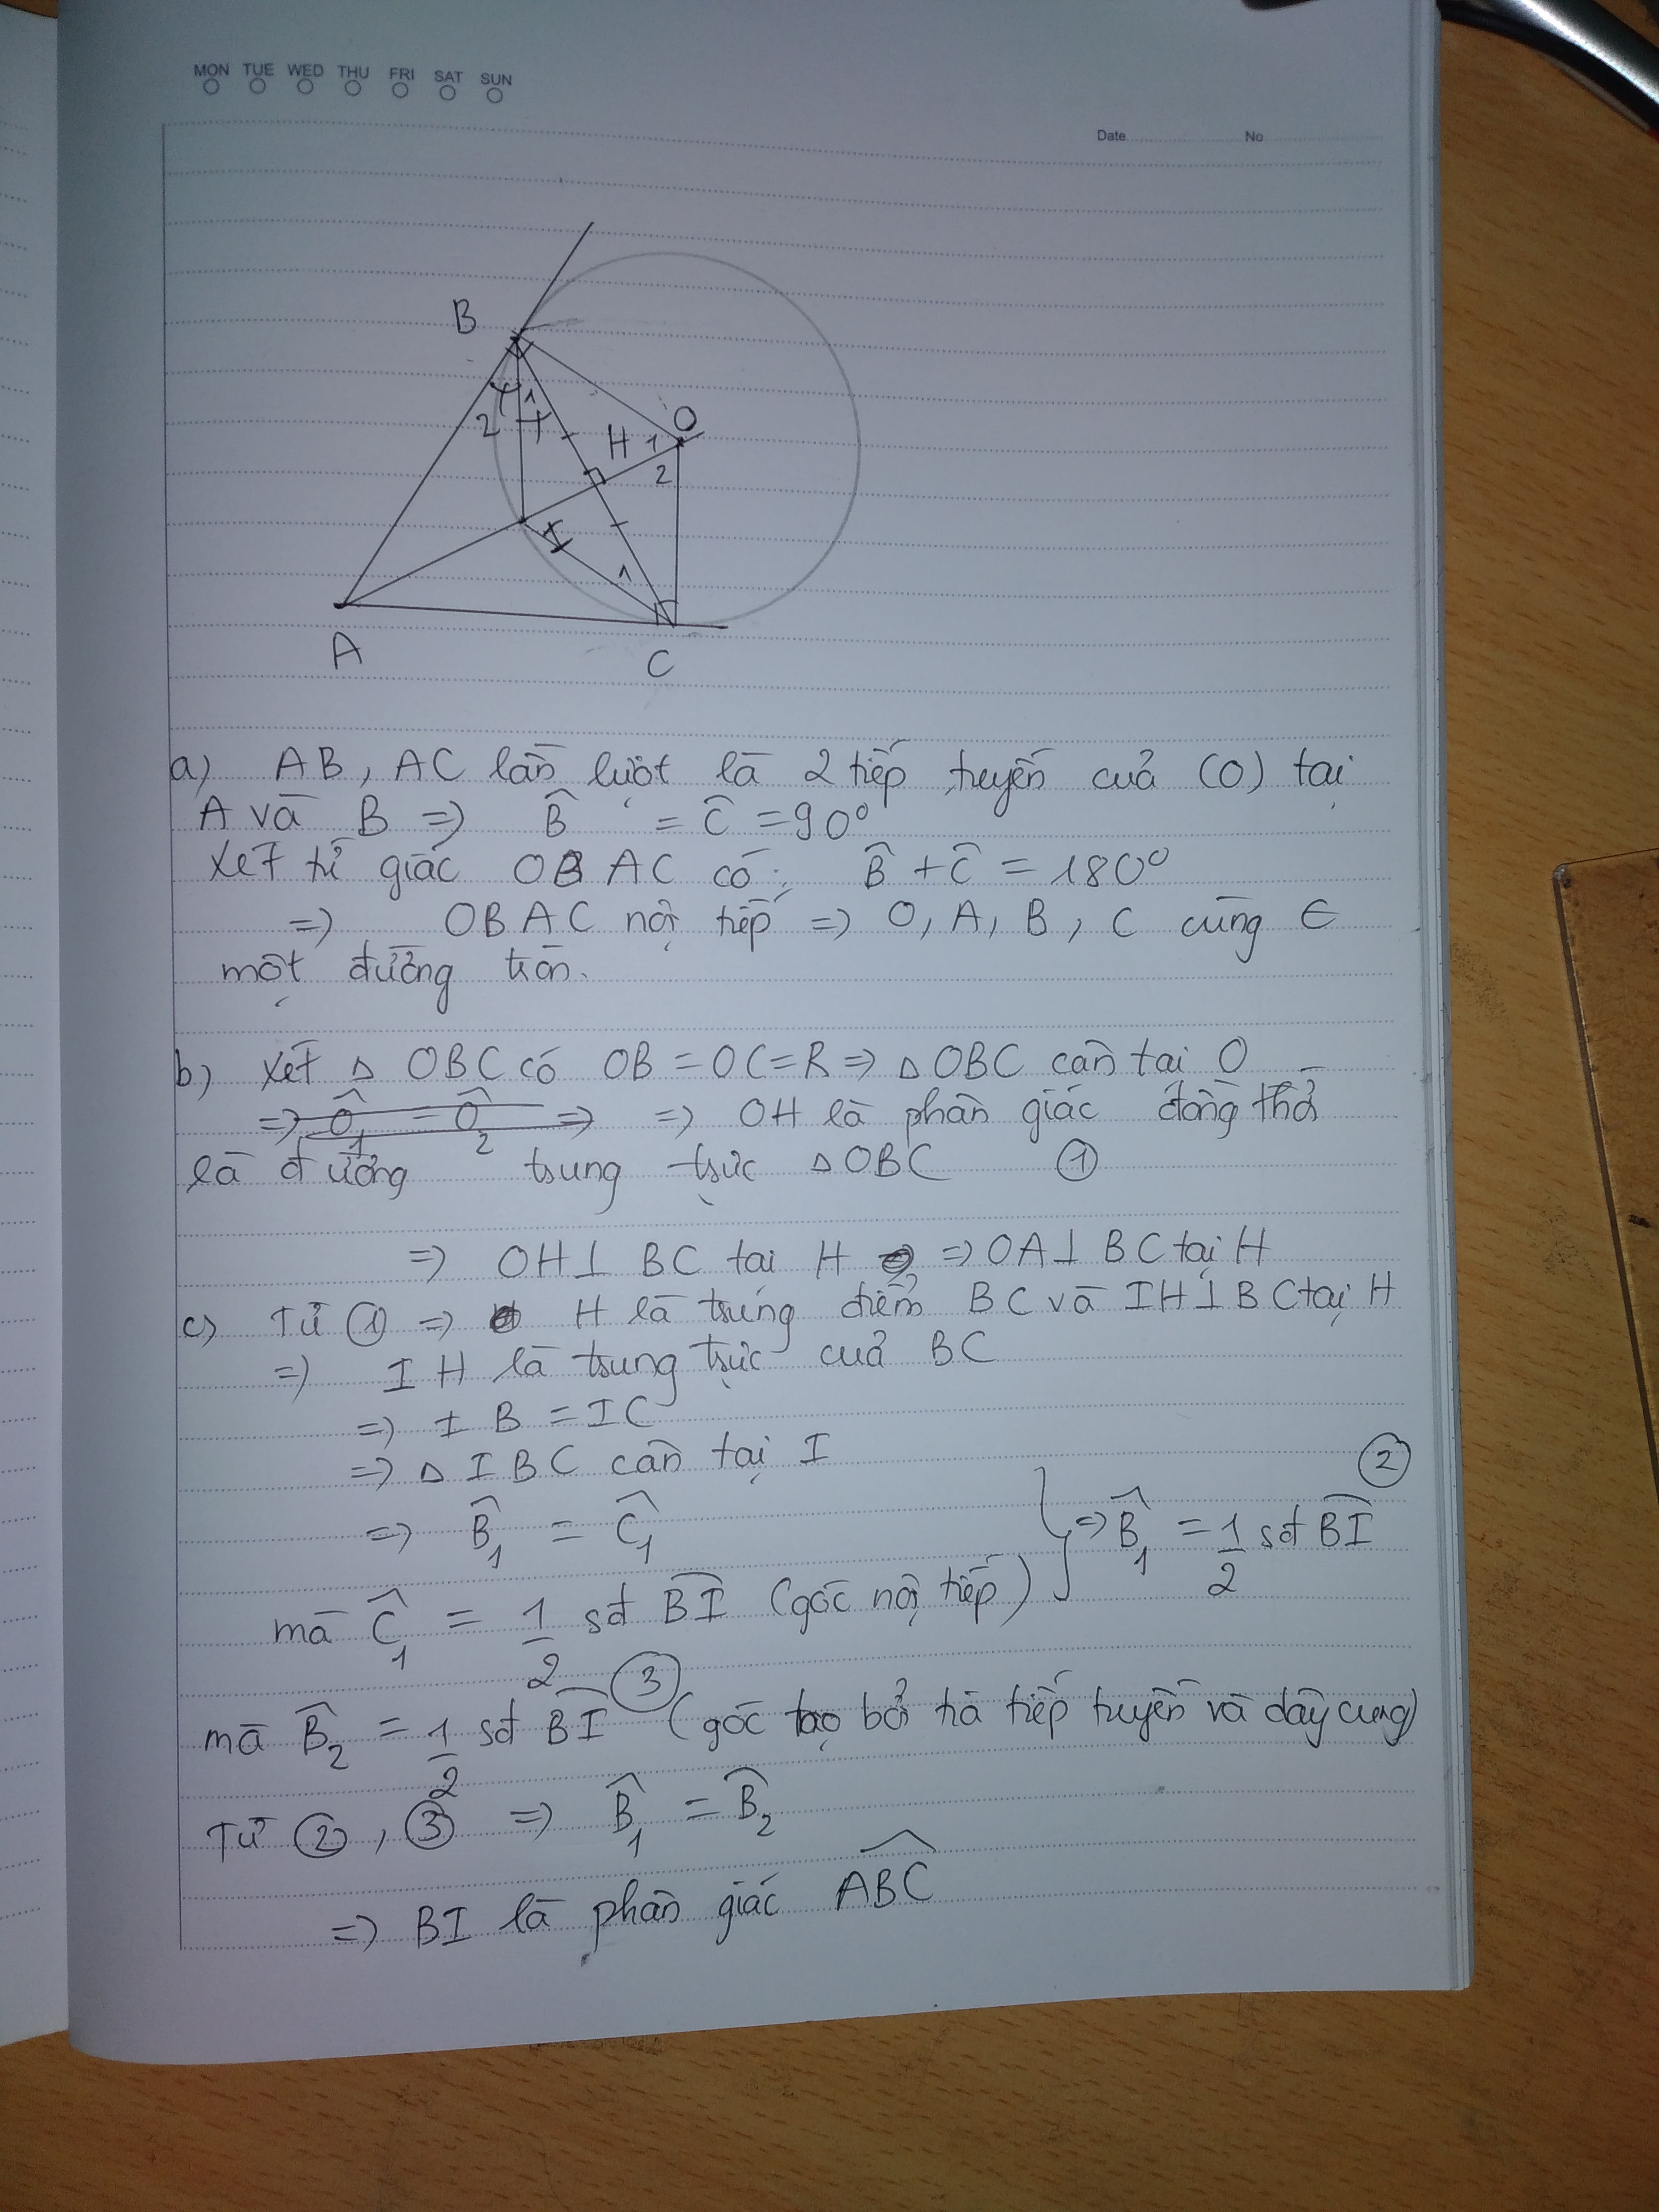 MON TUE WED THU FRI SAT SUN
Date No
B
2 1
H 1 O
2
I
1
A
C
a) AB, AC lần lượt là 2 tiếp tuyến của (O) tại
A và B => B̂ = Ĉ = 90°
Xét tứ giác OBAC có: B̂ + Ĉ = 180°
=> OBAC nội tiếp => O, A, B, C cùng ∈
một đường tròn.
b) Xét △ OBC có OB = OC = R => △ OBC cân tại O
=> Ô₁ = Ô₂ => => OH là phân giác đồng thời
là đường trung trực △ OBC ①
=> OH ⊥ BC tại H => OA ⊥ BC tại H
c) Từ ① => H là trung điểm BC và IH ⊥ BC tại H
=> IH là trung trực của BC
=> IB = IC
=> △ IBC cân tại I
=> B̂₁ = Ĉ₁ } => B̂₁ = 1/2 sđ BI ②
mà Ĉ₁ = 1/2 sđ BI (góc nội tiếp)
mà B̂₂ = 1/2 sđ BI ③ (góc tạo bởi tia tiếp tuyến và dây cung)
Từ ②, ③ => B̂₁ = B̂₂
=> BI là phân giác ABC